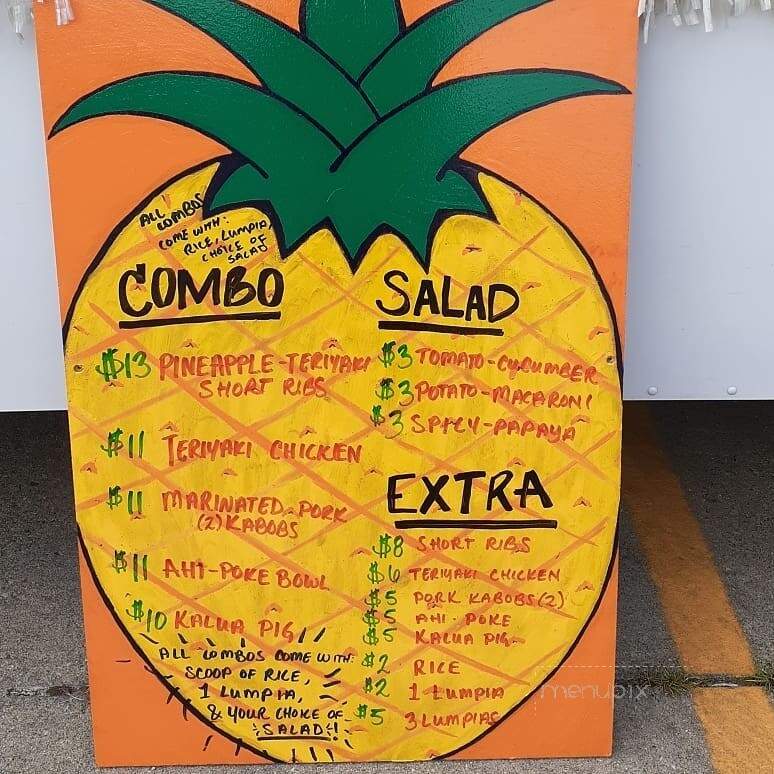 ALL COMBOS
COME WITH:
RICE, LUMPIA,
CHOICE OF
SALAD
COMBO
$13 PINEAPPLE-TERIYAKI
SHORT RIBS
$11 TERIYAKI CHICKEN
$11 MARINATED PORK
(2) KABOBS
$11 AHI-POKE BOWL
$10 KALUA PIG
ALL COMBOS COME WITH:
SCOOP OF RICE,
1 LUMPIA,
& YOUR CHOICE OF
SALAD!
SALAD
$3 TOMATO-CUCUMBER
$3 POTATO-MACARONI
$3 SPICY-PAPAYA
EXTRA
$8 SHORT RIBS
$6 TERIYAKI CHICKEN
$5 PORK KABOBS (2)
$5 AHI-POKE
$5 KALUA PIG
$2 RICE
$2 1 LUMPIA
$5 3 LUMPIAS
menubix